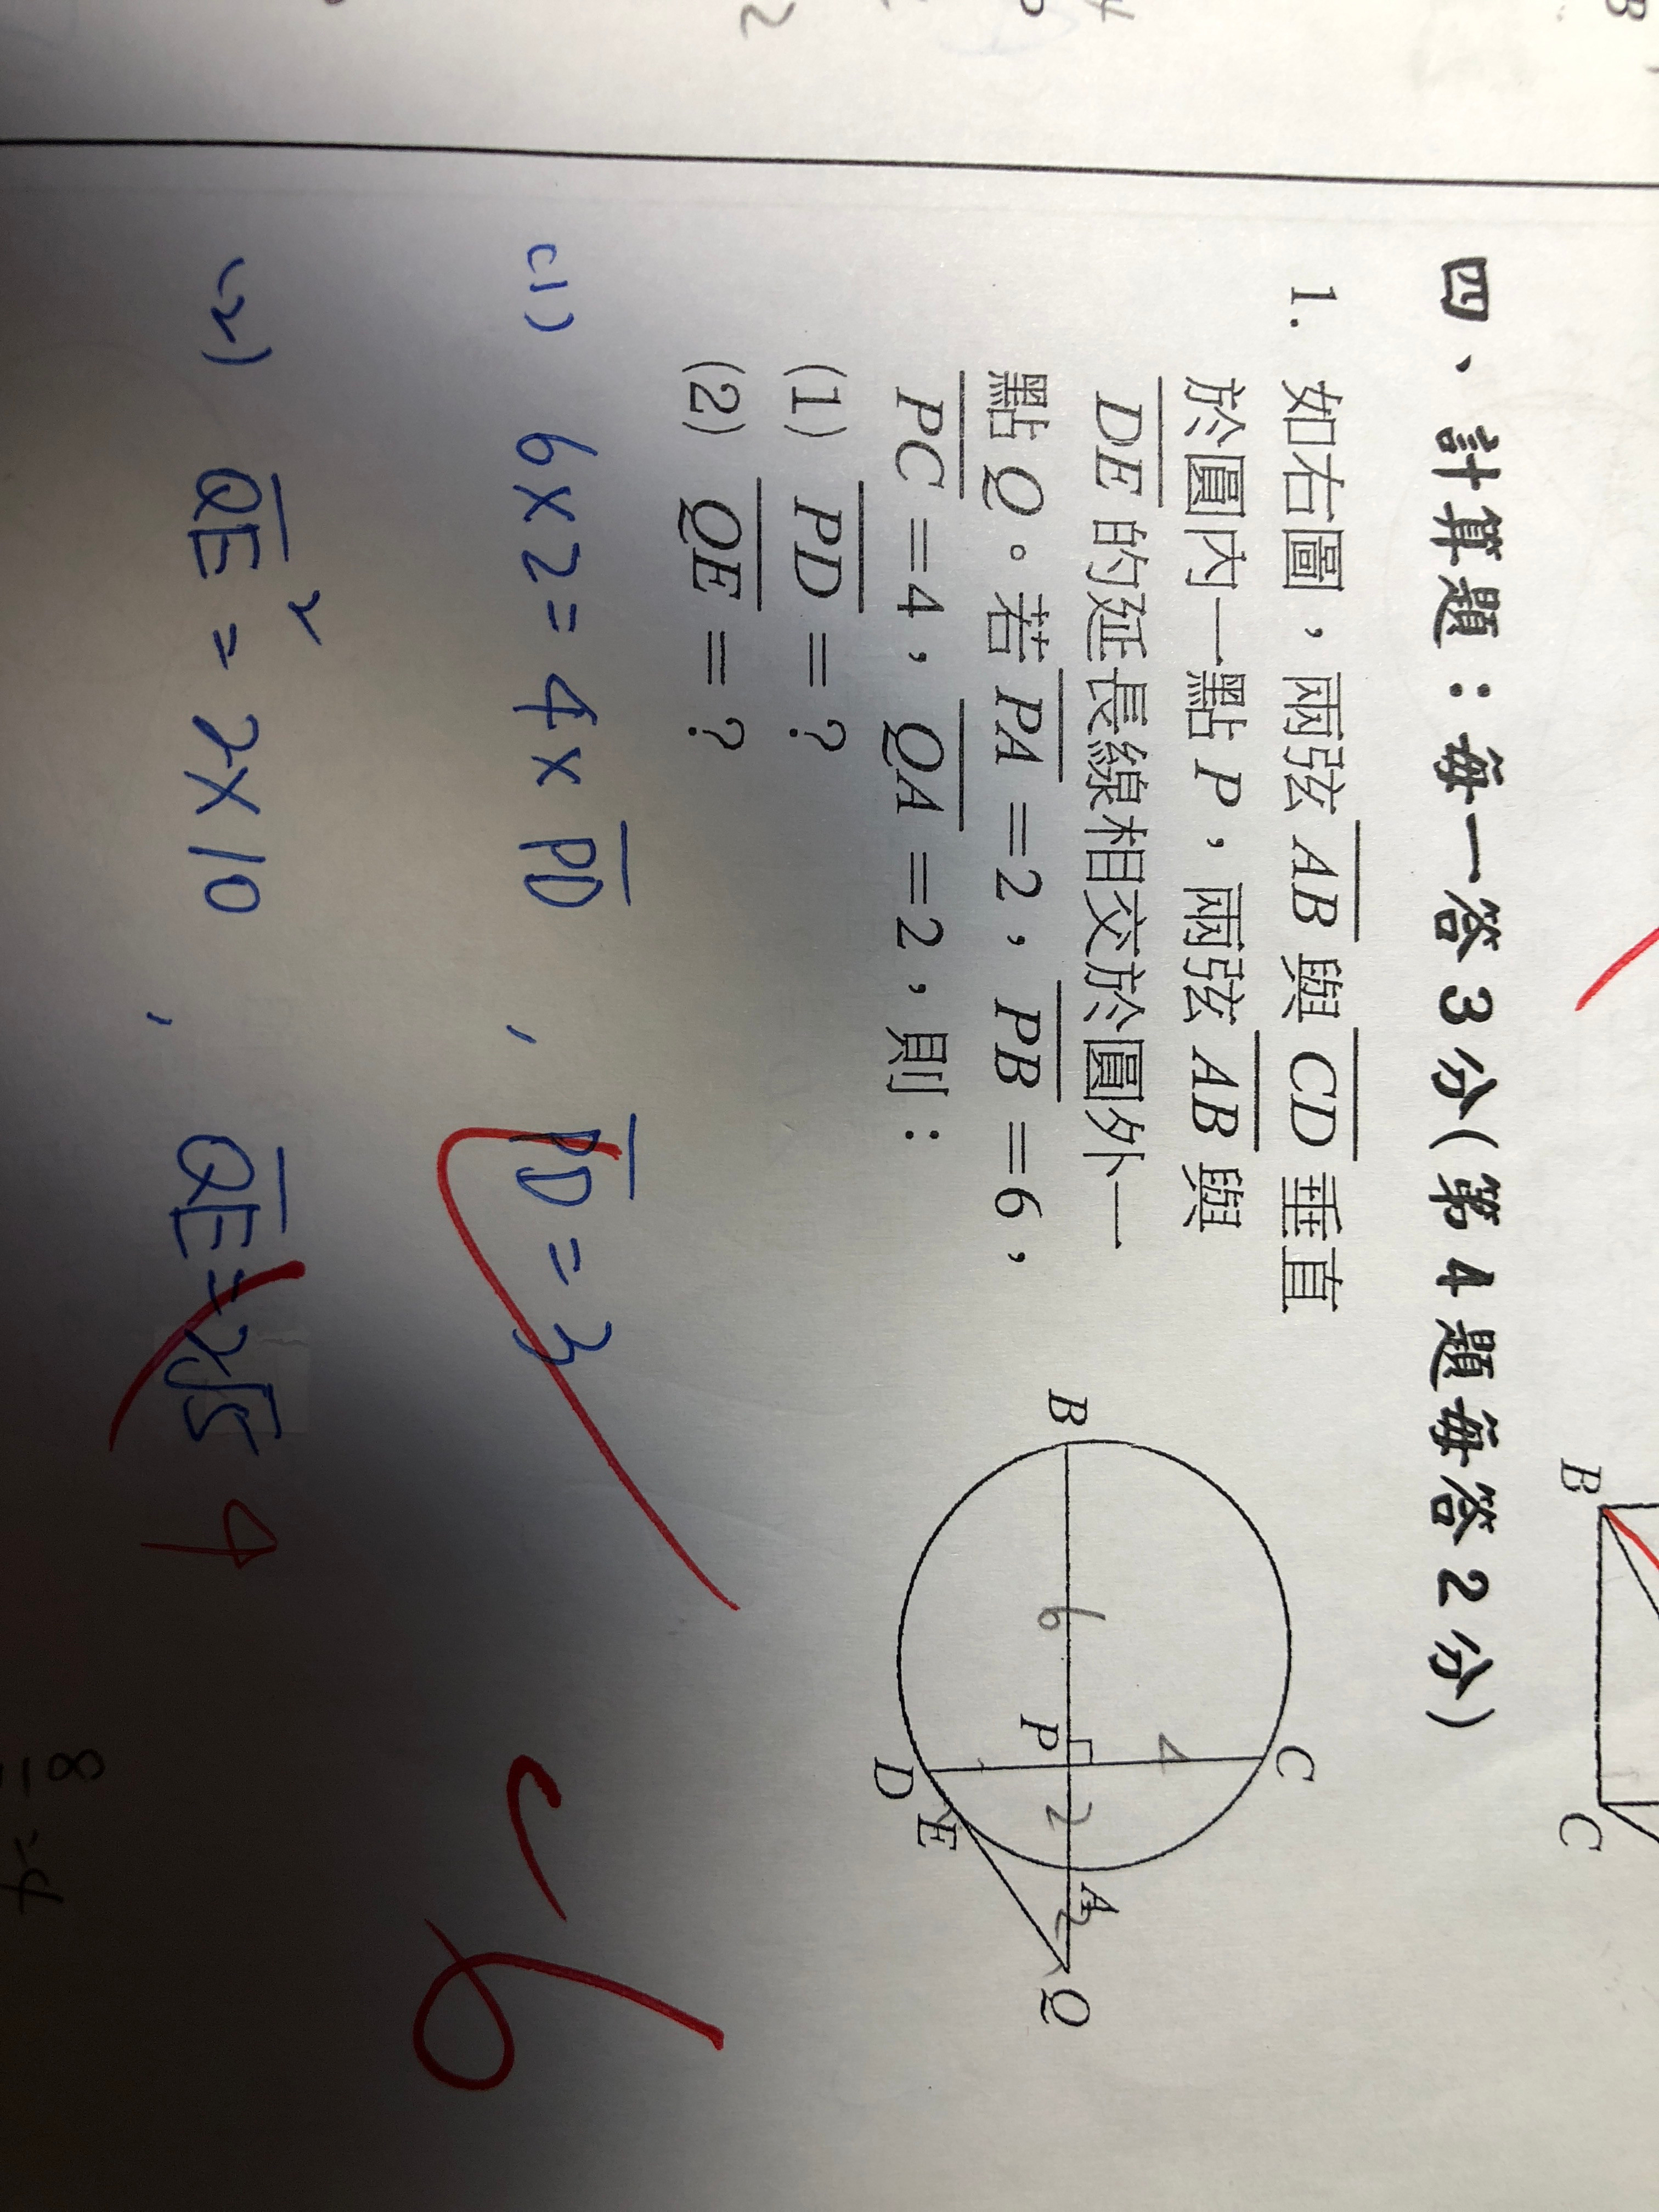 四、計算題：每一答3分(第4題每答2分)
1. 如右圖，兩弦 AB 與 CD 垂直
於圓內一點 P，兩弦 AB 與
DE 的延長線相交於圓外一
點 Q。若 PA =2，PB =6，
PC =4，QA =2，則：
(1) PD =？
(2) QE =？
B
C
6
4
P
2
A
2
Q
D
E
B
C
(1) 6×2=4×PD , PD=3
(2) QE²=2×10 , QE=2√5 4